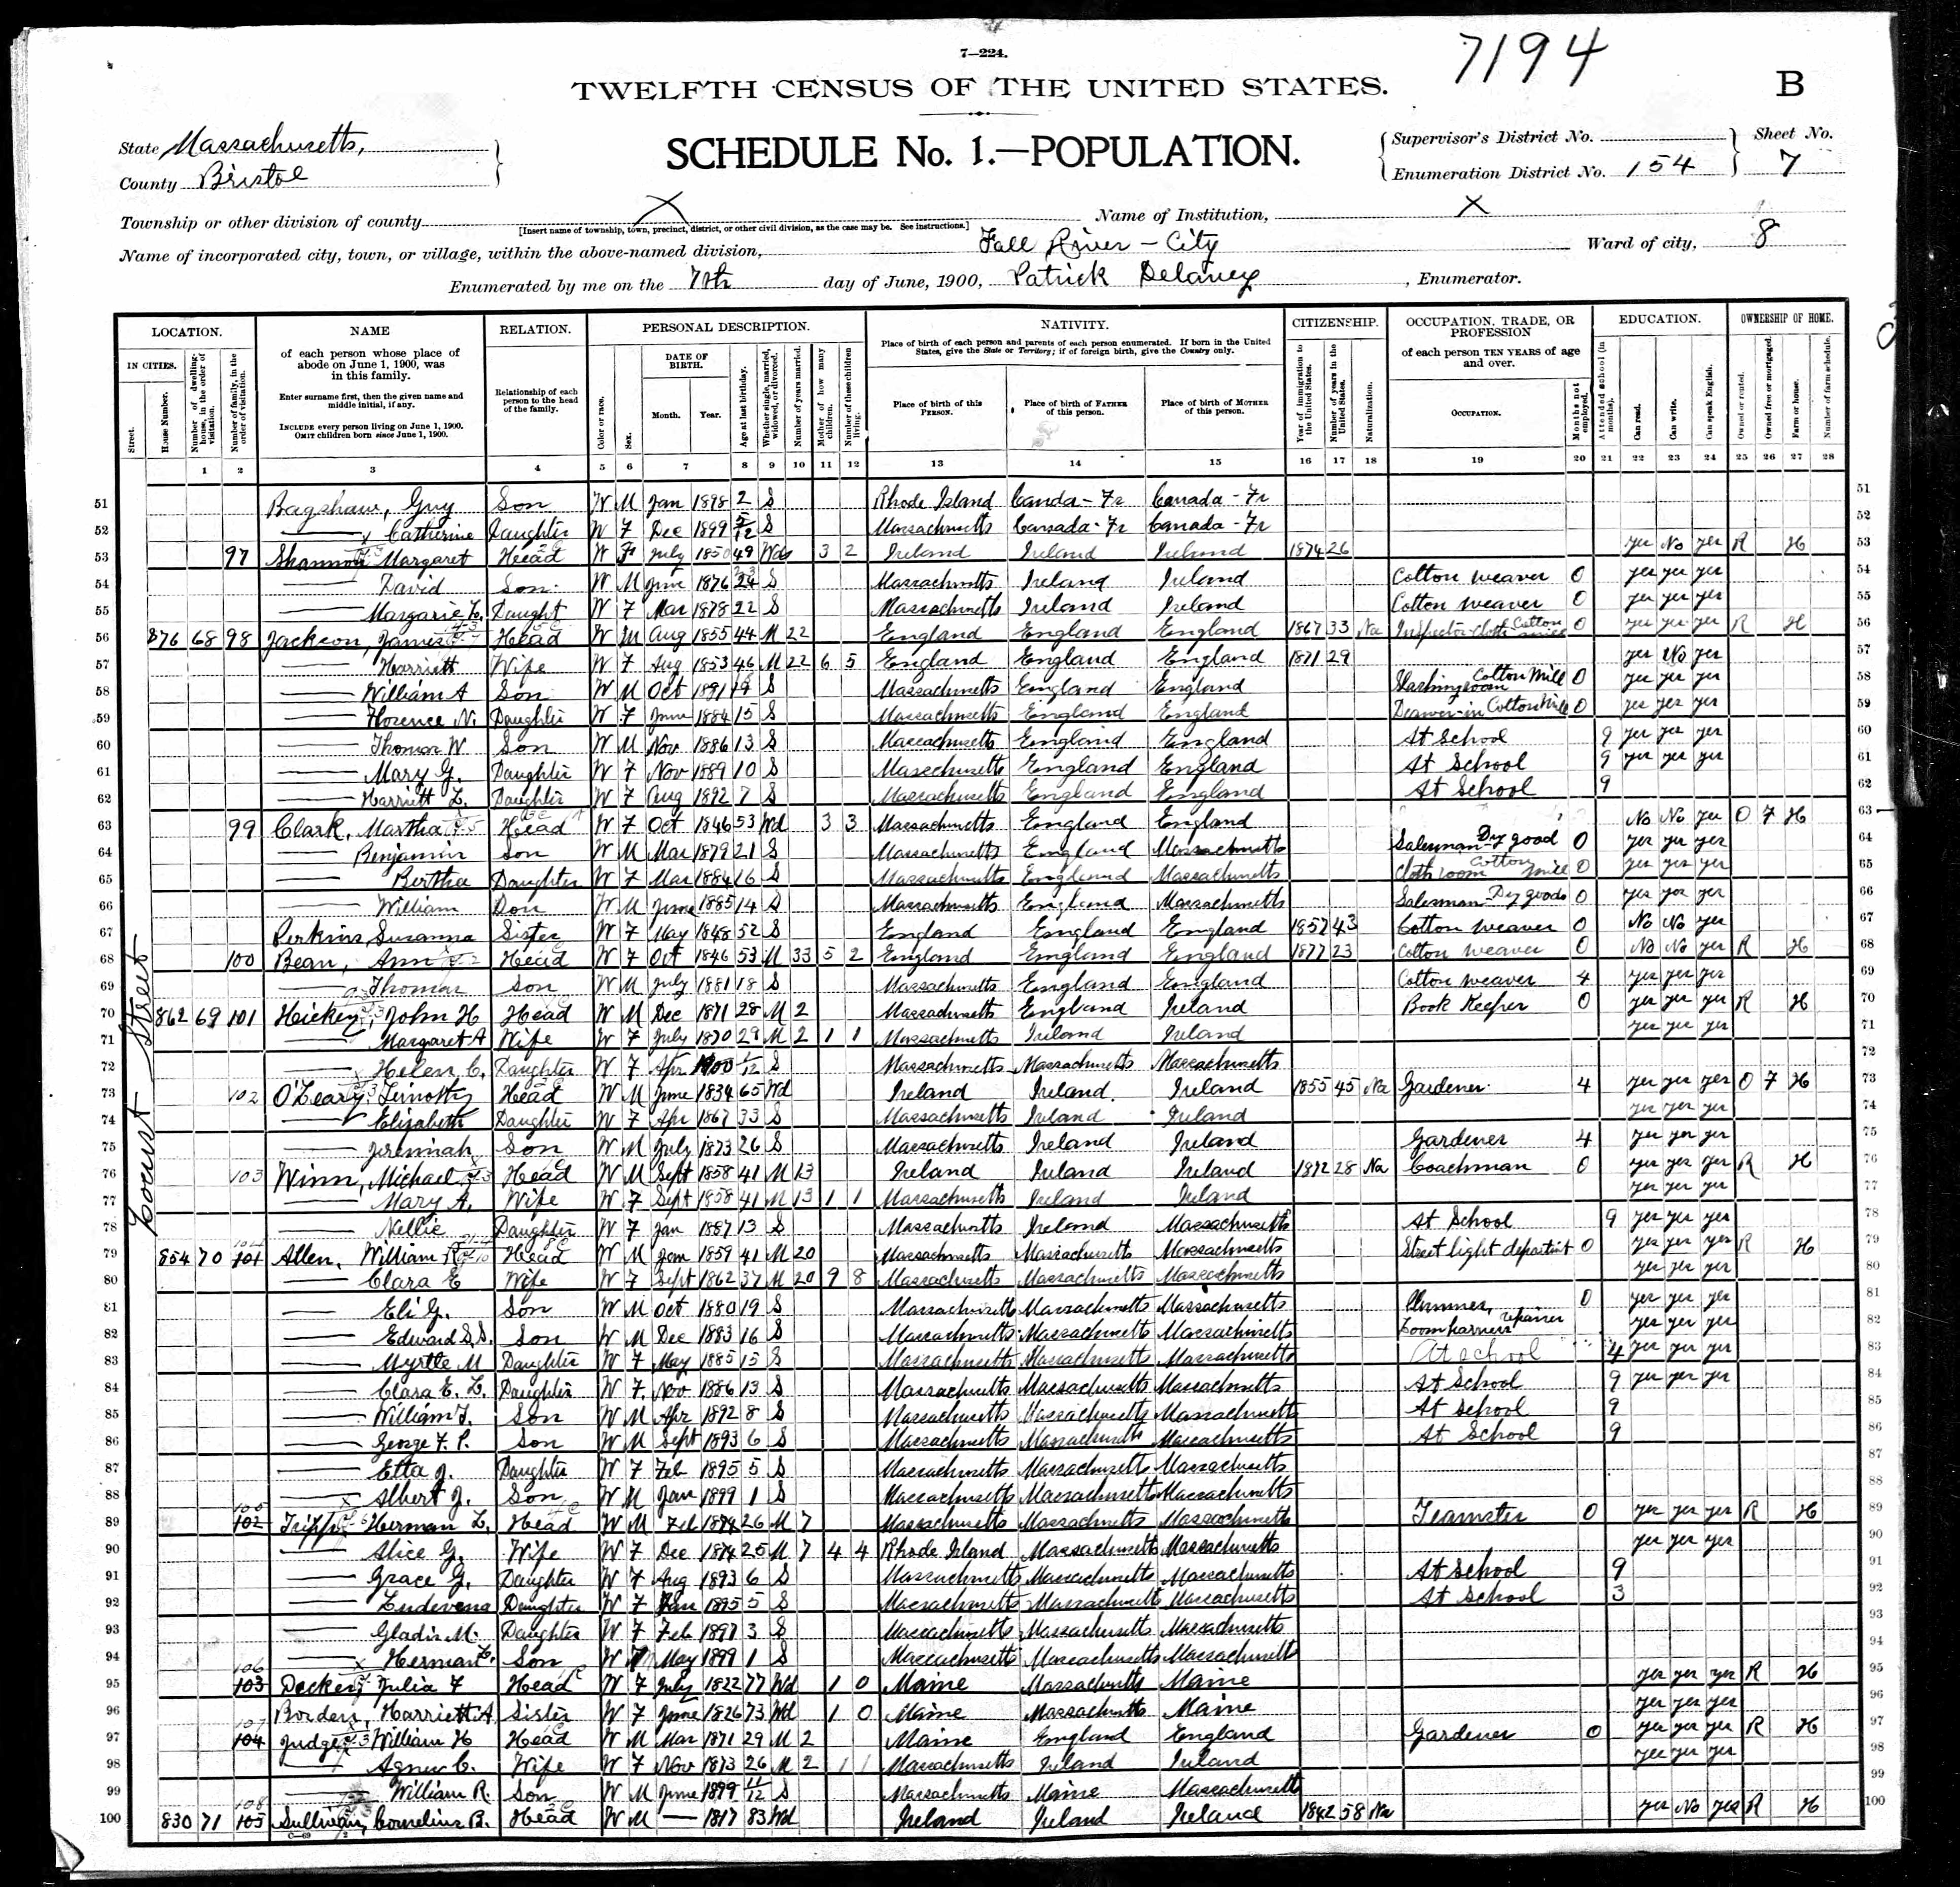 7194
7—224.
TWELFTH CENSUS OF THE UNITED STATES.
B
State Massachusetts,
County Bristol
SCHEDULE No. 1.—POPULATION.
Supervisor's District No.
Enumeration District No. 154
Sheet No.
7
Township or other division of county X
[Insert name of township, town, precinct, district, or other civil division, as the case may be. See instructions.]
Name of Institution, X
Name of incorporated city, town, or village, within the above-named division, Fall River - City
Ward of city, 8
Enumerated by me on the 7th day of June, 1900, Patrick Delaney, Enumerator.
LOCATION. NAME RELATION. PERSONAL DESCRIPTION. NATIVITY. CITIZENSHIP. OCCUPATION, TRADE, OR PROFESSION EDUCATION. OWNERSHIP OF HOME.
IN CITIES.
Street.
House Number.
Number of dwelling-house, in the order of visitation.
Number of family, in the order of visitation.
of each person whose place of abode on June 1, 1900, was in this family.
Enter surname first, then the given name and middle initial, if any.
INCLUDE every person living on June 1, 1900. OMIT children born since June 1, 1900.
Relationship of each person to the head of the family.
Color or race.
Sex.
DATE OF BIRTH.
Month. Year.
Age at last birthday.
Whether single, married, widowed, or divorced.
Number of years married.
Mother of how many children.
Number of these children living.
Place of birth of each person and parents of each person enumerated. If born in the United States, give the State or Territory; if of foreign birth, give the Country only.
Place of birth of this PERSON.
Place of birth of FATHER of this person.
Place of birth of MOTHER of this person.
Year of immigration to the United States.
Number of years in the United States.
Naturalization.
of each person TEN YEARS of age and over.
OCCUPATION.
Months not employed.
Attended school (in months).
Can read.
Can write.
Can speak English.
Owned or rented.
Owned free or mortgaged.
Farm or house.
Number of farm schedule.
1 2 3 4 5 6 7 8 9 10 11 12 13 14 15 16 17 18 19 20 21 22 23 24 25 26 27 28
Locust Street
51 Bagshaw, Guy Son W M Jan 1898 2 S Rhode Island Canda - Fr Canada - Fr 51
52 Catherine Daughter W F Dec 1899 5/12 S Massachusetts Canada - Fr Canada - Fr 52
53 97 Shannon, Margaret Head W F July 1850 49 Wd 3 2 Ireland Ireland Ireland 1874 26 yes No yes R H 53
54 David Son W M June 1876 S Massachusetts Ireland Ireland Cotton weaver 0 yes yes yes 54
55 Daught W F Mar 1878 22 S Massachusetts Ireland Ireland Cotton weaver 0 yes yes yes 55
56 876 68 98 Jackson, James Head W M Aug 1855 44 M 22 England England England 1867 33 Na Inspector Cloth Cotton mill 0 yes yes yes R H 56
57 Harriett Wife W F Aug 1853 46 M 22 6 5 England England England 1871 29 yes No yes 57
58 William A Son W M Oct S Massachusetts England England Cotton Mill 0 yes yes yes 58
59 Florence N. Daughter W F June 1884 15 S Massachusetts England England Drawer-in Cotton Mill 0 yes yes yes 59
60 Thomas W Son W M Nov 1886 13 S Massachusetts England England At School 9 yes yes yes 60
61 Mary G. Daughter W F Nov 1889 10 S Massachusetts England England At School 9 yes yes yes 61
62 Harriett L. Daughter W F Aug 1892 7 S Massachusetts England England At School 9 62
63 99 Clark, Martha Head W F Oct 1846 53 Wd 3 3 Massachusetts England England No No yes O F H 63
64 Benjamin Son W M Mar 1879 21 S Massachusetts England Massachusetts Salesman Dry good 0 yes yes yes 64
65 Bertha Daughter W F Mar 1884 16 S Massachusetts England Massachusetts Cloth room Cotton mill 0 yes yes yes 65
66 William Son W M June 1885 14 S Massachusetts England Massachusetts Salesman Dry goods 0 yes yes yes 66
67 Perkins Susanna Sister W F May 1848 52 S England England England 1857 43 Cotton weaver 0 No No yes 67
68 100 Bean, Ann Head W F Oct 1846 53 M 33 5 2 England England England 1877 23 Cotton weaver 0 No No yes R H 68
69 Thomas Son W M July 1881 18 S Massachusetts England England Cotton weaver 4 yes yes yes 69
70 862 69 101 Hickey, John H Head W M Dec 1871 28 M 2 Massachusetts England Ireland Book Keeper 0 yes yes yes R H 70
71 Margaret A Wife W F July 1870 29 M 2 1 1 Massachusetts Ireland Ireland yes yes yes 71
72 Helen C. Daughter W F Apr 1900 1/12 S Massachusetts Massachusetts Massachusetts 72
73 102 O'Leary, Timothy Head W M June 1834 65 Wd Ireland Ireland Ireland 1855 45 Na Gardener 4 yes yes yes O F H 73
74 Elizabeth Daughter W F Apr 1867 33 S Massachusetts Ireland Ireland yes yes yes 74
75 Jeremiah Son W M July 1873 26 S Massachusetts Ireland Ireland Gardener 4 yes yes yes 75
76 103 Winn, Michael Head W M Sept 1858 41 M 13 Ireland Ireland Ireland 1872 28 Na Coachman 0 yes yes yes R H 76
77 Mary A. Wife W F Sept 1858 41 M 13 1 1 Massachusetts Ireland Ireland yes yes yes 77
78 Nellie Daughter W F Jan 1887 13 S Massachusetts Ireland Massachusetts At School 9 yes yes yes 78
79 854 70 101 Allen, William R Head W M Jan 1859 41 M 20 Massachusetts Massachusetts Massachusetts Street light department 0 yes yes yes R H 79
80 Clara E Wife W F Sept 1862 37 M 20 9 8 Massachusetts Massachusetts Massachusetts yes yes yes 80
81 Eli G. Son W M Oct 1880 19 S Massachusetts Massachusetts Massachusetts 0 yes yes yes 81
82 Edward S. Son W M Dec 1883 16 S Massachusetts Massachusetts Massachusetts Loom harness repairer yes yes yes 82
83 Myrtle M Daughter W F May 1885 15 S Massachusetts Massachusetts Massachusetts At school 4 yes yes yes 83
84 Clara E. L. Daughter W F Nov 1886 13 S Massachusetts Massachusetts Massachusetts At School 9 yes yes yes 84
85 William F. Son W M Apr 1892 8 S Massachusetts Massachusetts Massachusetts At School 9 85
86 George F. P. Son W M Sept 1893 6 S Massachusetts Massachusetts Massachusetts At School 9 86
87 Etta J. Daughter W F Feb 1895 5 S Massachusetts Massachusetts Massachusetts 87
88 Albert J. Son W M Jan 1899 1 S Massachusetts Massachusetts Massachusetts 88
89 105 102 Tripp, Herman L. Head W M Feb 1874 26 M 7 Massachusetts Massachusetts Massachusetts Teamster 0 yes yes yes R H 89
90 Alice G. Wife W F Dec 1874 25 M 7 4 4 Rhode Island Massachusetts Massachusetts yes yes yes 90
91 Grace G. Daughter W F Aug 1893 6 S Massachusetts Massachusetts Massachusetts At School 9 91
92 Ludevena Daughter W F Jan 1895 5 S Massachusetts Massachusetts Massachusetts At School 3 92
93 Gladis M. Daughter W F Feb 1897 3 S Massachusetts Massachusetts Massachusetts 93
94 Herman L. Son W M May 1899 1 S Massachusetts Massachusetts Massachusetts 94
95 106 103 Decker, Julia F Head W F July 1822 77 Wd 1 0 Maine Massachusetts Maine yes yes yes R H 95
96 Borden, Harriett A Sister W F June 1826 73 Wd 1 0 Maine Massachusetts Maine yes yes yes 96
97 107 104 Judge, William H Head W M Mar 1871 29 M 2 Maine England England Gardener 0 yes yes yes R H 97
98 Agnes C. Wife W F Nov 1873 26 M 2 1 1 Massachusetts Ireland Ireland yes yes yes 98
99 William R. Son W M June 1899 11/12 S Massachusetts Maine Massachusetts 99
100 830 71 108 105 Sullivan, Cornelius B. Head W M — 1817 83 Wd Ireland Ireland Ireland 1842 58 Na yes No yes R H 100